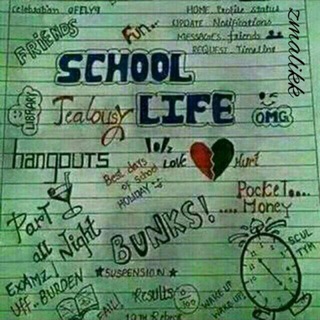 Celebration OFFLY9
HOME Profile status
UPDATE Notifications
MESSAGES friends
REQUEST Timeline
zmalikk
FRIENDS
Fun...
SCHOOL
LIFE
LIBRARY
Jealousy
OMG
hangouts
lol
Best days
of School
HOLIDAY
LOVE
Hurt
Pocket....
.... Money
Part
all Night
BUNKS!
★SUSPENSION★
EXAMZ!
Uff..BURDEN
FAIL!
Results
WAKE UP
WAKE UP!
SCUL
TYM